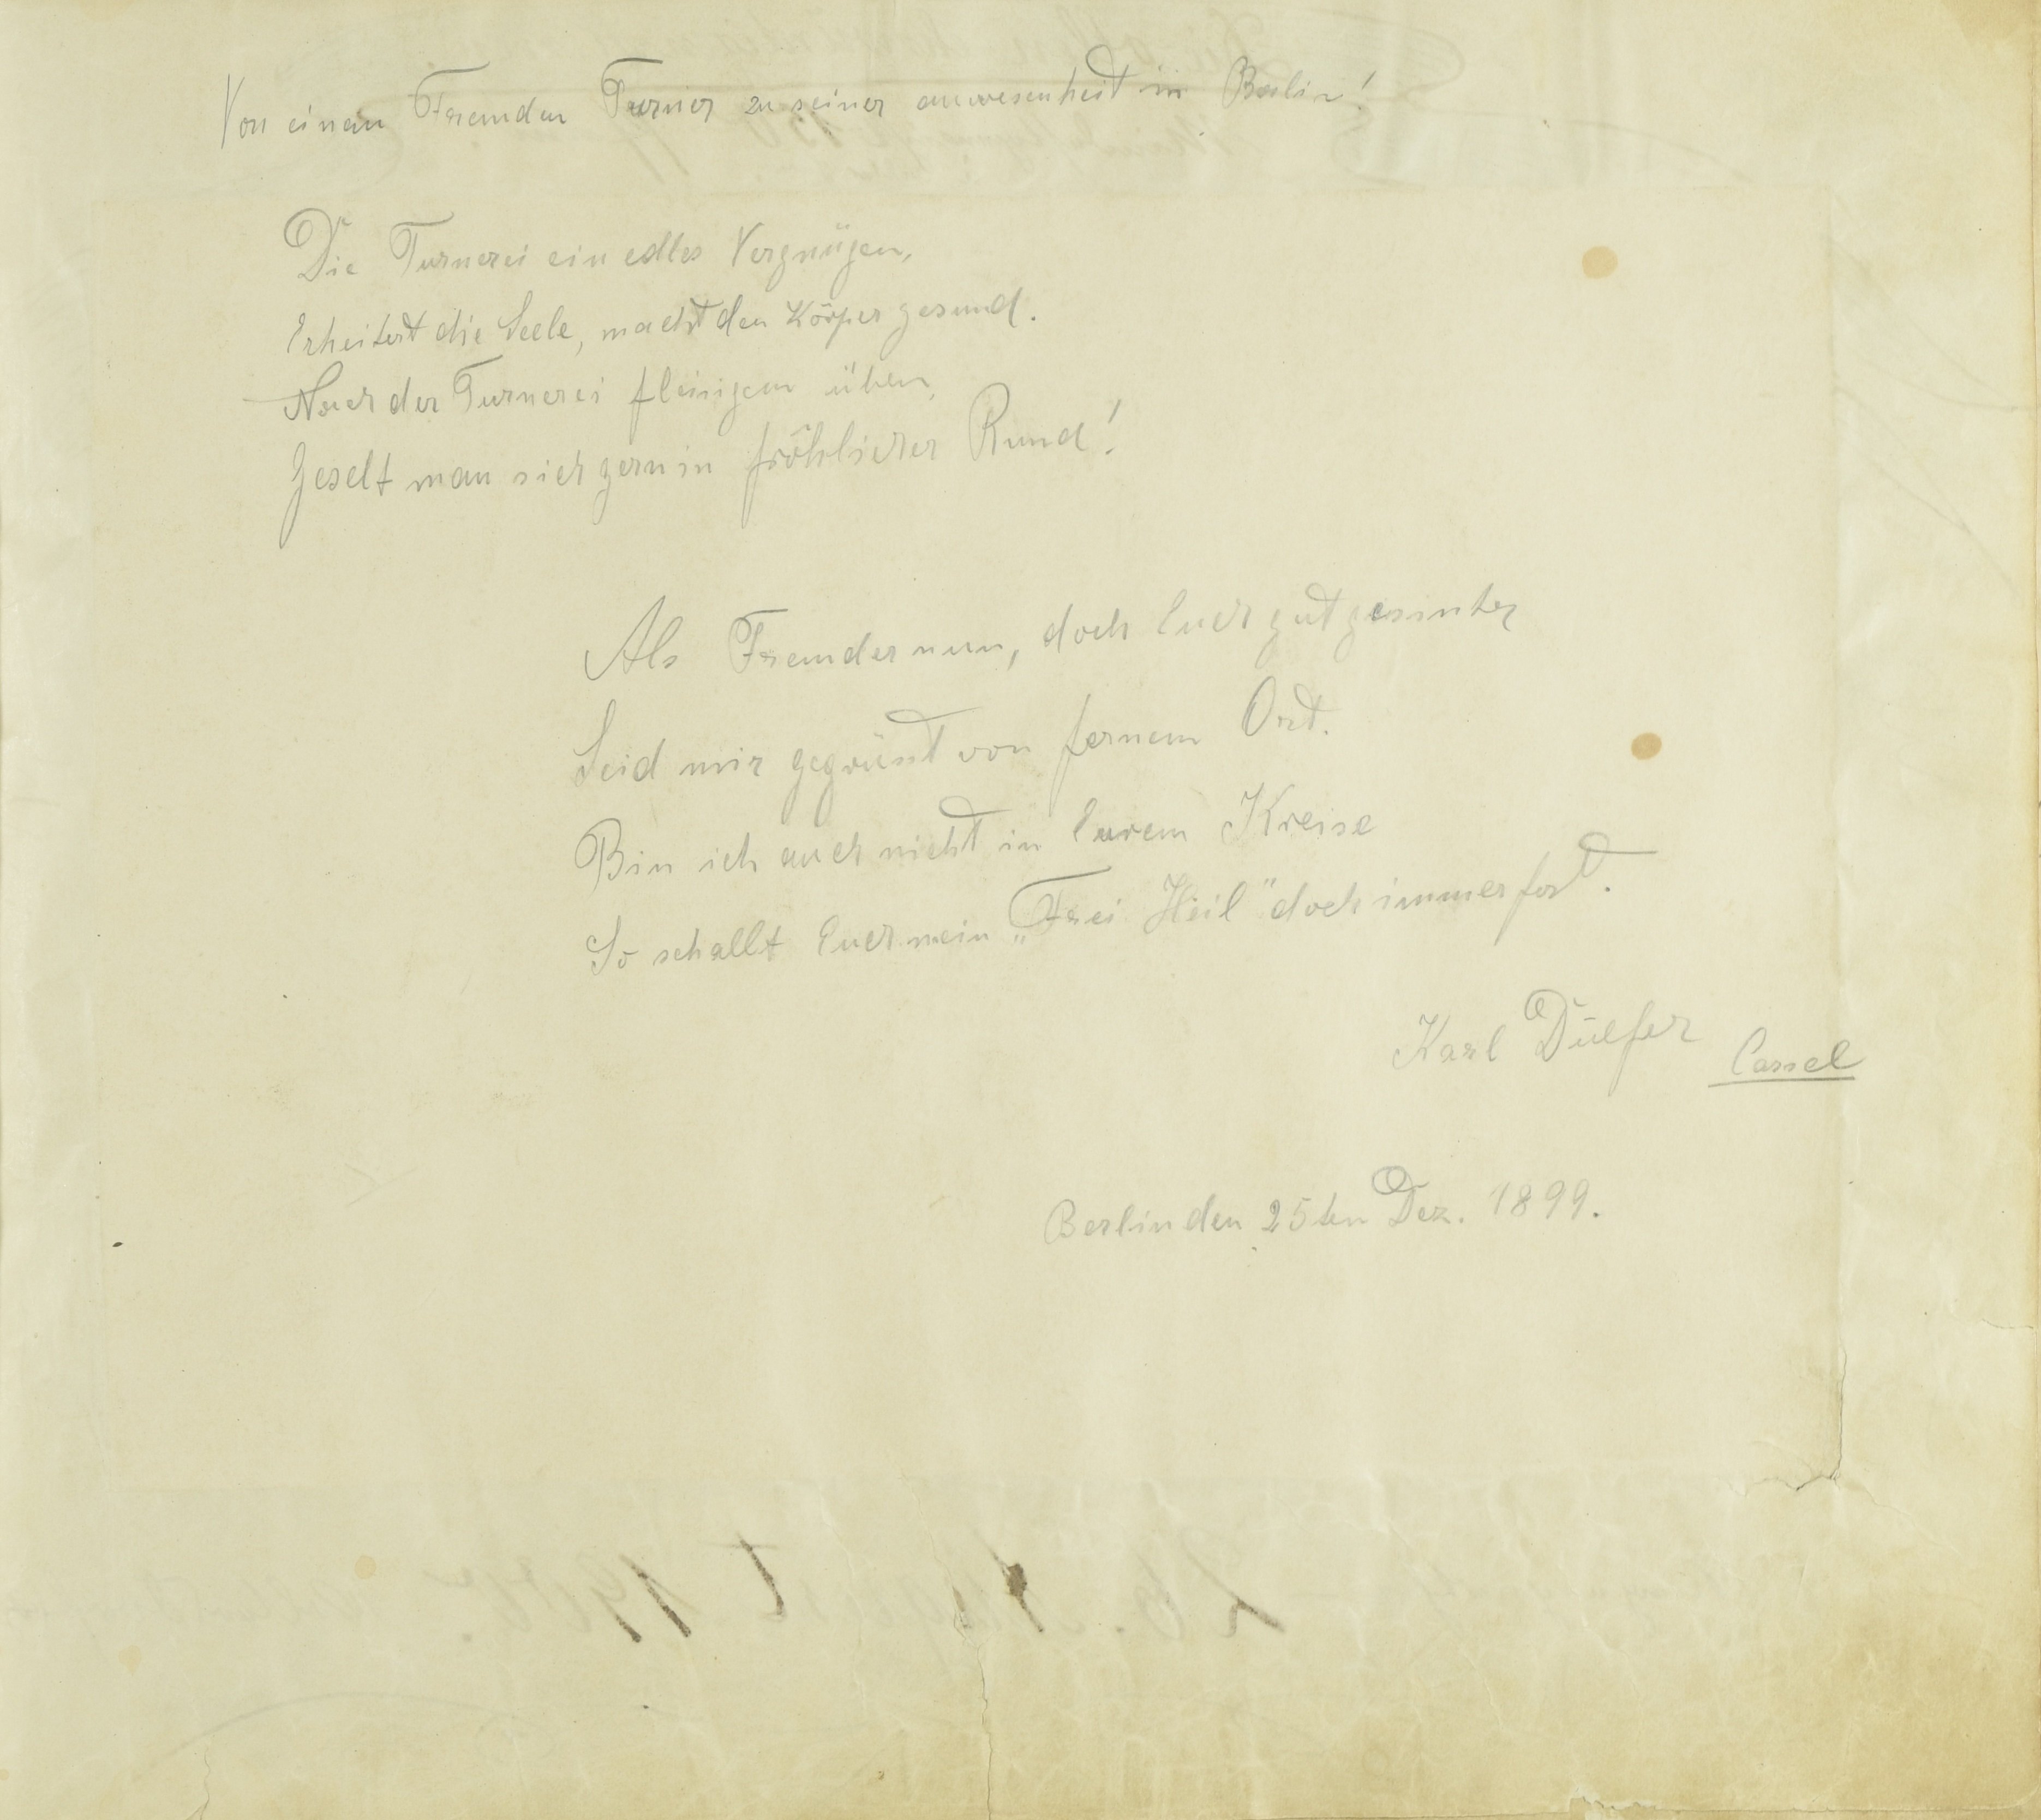 Von einem Fremden Turner zu seiner anwesenheit in Berlin!
Die Turnerei ein edles Vergnügen,
Erheitert die Seele, macht den Körper gesund.
Nach der Turnerei fleisigem üben,
Geselt man sich gern in fröhlicher Rund!
Als Fremder nun, doch Euch gut gesinnter
Seid mir gegrüsst von fernem Ort.
Bin ich auch nicht in Eurem Kreise
So schallt Euch mein „Frei Heil" doch immerfort.
Karl Dülfer Cassel
Berlin den 25ten Dez. 1899.